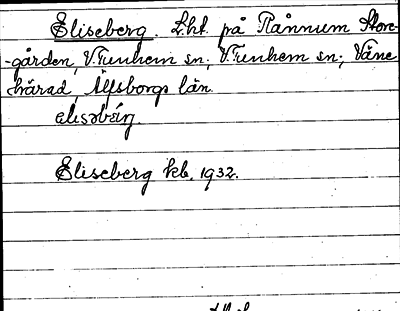 Eliseberg. Lht. på Rånnum Store-
-gården, V. Tunhem sn; V. Tunhem sn; Väne
härad, Älfsborgs län.
Eliseberg kb. 1932.